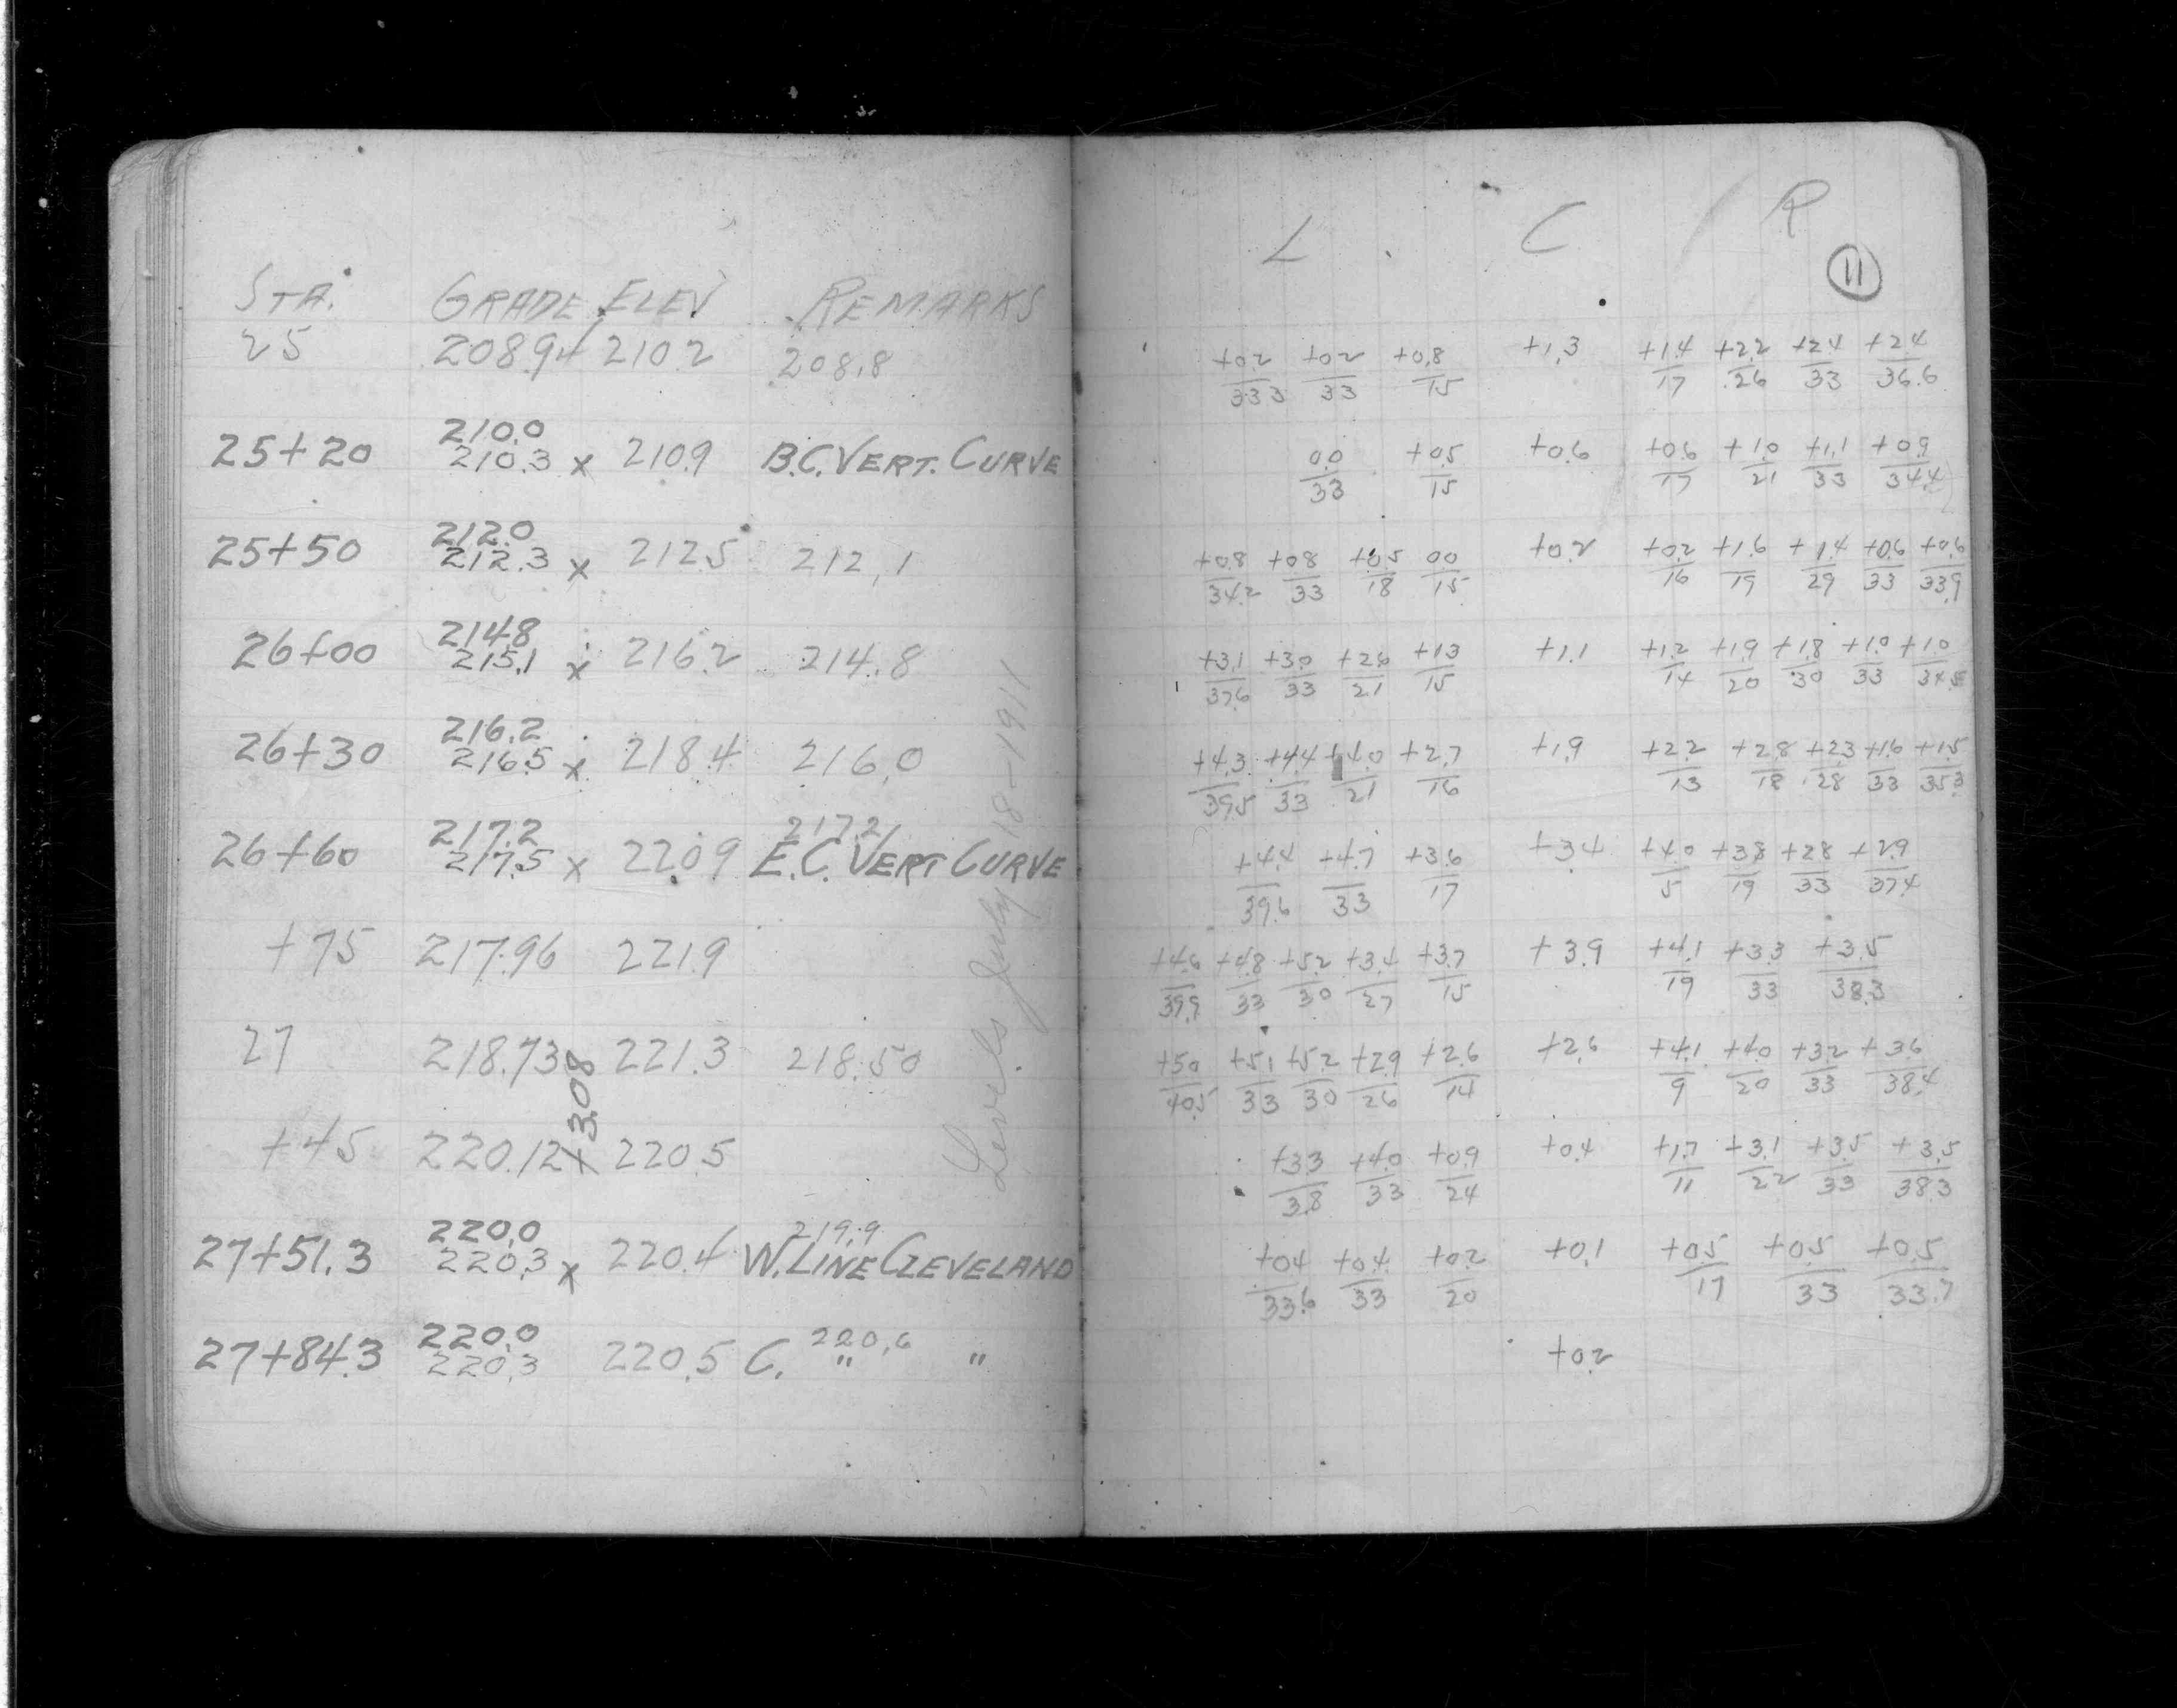 STA. GRADE ELEV REMARKS
25 208.94 210.2 208.8
210.0
25+20 210.3 x 210.9 B.C. VERT. CURVE
212.0
25+50 212.3 x 212.5 212.1
214.8
26+00 215.1 x 216.2 214.8
216.2
26+30 216.5 x 218.4 216.0
217.2 217.2
26+60 217.5 x 220.9 E.C. VERT CURVE
+75 217.96 221.9
27 218.73 221.3 218.50
+3.08
+45 220.12 220.5
220.0 219.9
27+51.3 220.3 x 220.4 W. LINE CLEVELAND
220.0 220.6
27+84.3 220.3 220.5 C. " "
Levels July 18-1911
L C R
11
+0.2 +0.2 +0.8 +1.3 +1.4 +2.2 +2.4 +2.4
33.3 33 15 17 26 33 36.6
0.0 +0.5 +0.6 +0.6 +1.0 +1.1 +0.9
33 15 17 21 33 34.4
+0.8 +0.8 +0.5 0.0 +0.2 +0.2 +1.6 +1.4 +0.6 +0.6
34.2 33 18 15 16 19 29 33 33.9
+3.1 +3.0 +2.6 +1.3 +1.1 +1.2 +1.9 +1.8 +1.0 +1.0
37.6 33 21 15 14 20 30 33 34.5
+4.3 +4.4 +4.0 +2.7 +1.9 +2.2 +2.8 +2.3 +1.6 +1.5
39.5 33 21 16 13 18 28 33 35.3
+4.4 +4.7 +3.6 +3.4 +4.0 +3.8 +2.8 +2.9
39.6 33 17 5 19 33 37.4
+4.6 +4.8 +5.2 +3.4 +3.7 +3.9 +4.1 +3.3 +3.5
39.9 33 30 27 15 19 33 38.3
+5.0 +5.1 +5.2 +2.9 +2.6 +2.6 +4.1 +4.0 +3.2 +3.6
40.5 33 30 26 14 9 20 33 38.4
+3.3 +4.0 +0.9 +0.4 +1.7 +3.1 +3.5 +3.5
38 33 24 11 22 33 38.3
+0.4 +0.4 +0.2 +0.1 +0.5 +0.5 +0.5
33.6 33 20 17 33 33.7
+0.2